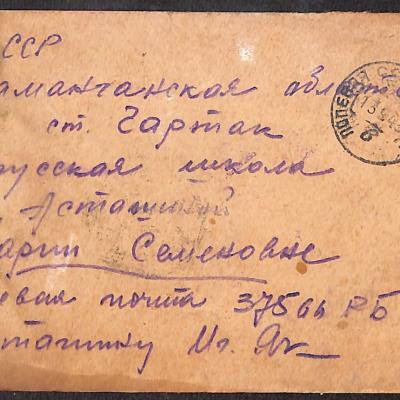 ССР
аманганская област
ст. Чартак
русская школа
Асташиной
арии Семеновне
евая почта 37566 РБ
сташину Иг. Як
ПОЛЕВАЯ